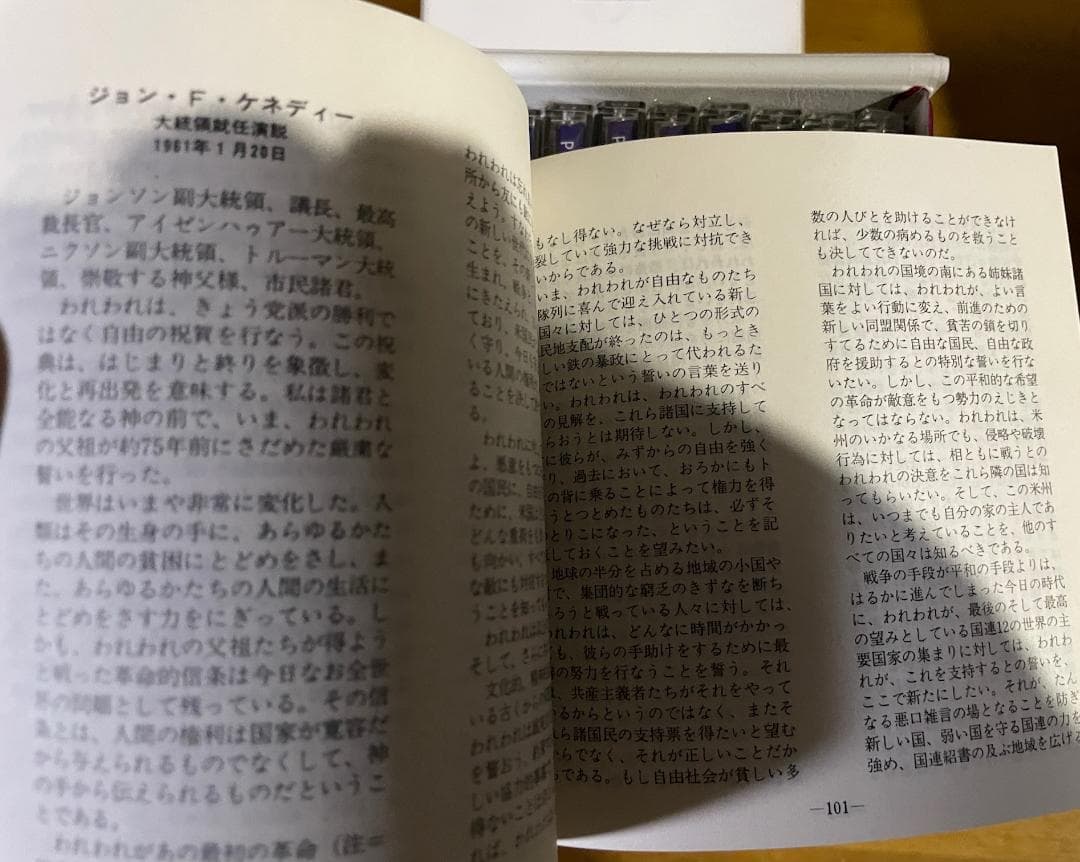 ジョン・F・ケネディー
大統領就任演説
1961年1月20日
ジョンソン副大統領、議長、最高
裁長官、アイゼンハゥアー大統領、
ニクソン副大統領、トルーマン大統
領、崇敬する神父様、市民諸君。
われわれは、きょう党派の勝利で
はなく自由の祝賀を行なう。この祝
典は、はじまりと終りを象徴し、変
化と再出発を意味する。私は諸君と
全能なる神の前で、いま、われわれ
の父祖が約75年前にさだめた厳粛な
誓いを行った。
世界はいまや非常に変化した。人
類はその生身の手に、あらゆるかた
ちの人間の貧困にとどめをさし、ま
た、あらゆるかたちの人間の生活に
とどめをさす力をにぎっている。し
かも、われわれの父祖たちが得よう
と戦った革命的信条は今日なお全世
界の問題として残っている。その信
条とは、人間の権利は国家が寛容だ
から与えられるものでなくして、神
の手から伝えられるものだというこ
とである。
われわれがあの最初の革命（注＝
われわれは忘れ
所から友にも
えよう。すな
の新しい世代
ことを、その
生まれ、戦争と
にきたえられ、
ており、米国
く守り、今日
いる人間の権
ることを決して
われわれに
よ、悪意をもつ
の国民に、自由
ために、米国
どんな重荷を
も向かい、すべ
な敵にも対抗する
うことを知って
われわれは
そして、さらに
文化的、精神
いる古くからの
われわれは誠実
を誓おう。お互
しい協力的事業
得ないことは
れば、われわれ
もなし得ない。なぜなら対立し、
裂していて強力な挑戦に対抗でき
いからである。
いま、われわれが自由なものたち
隊列に喜んで迎え入れている新し
国々に対しては、ひとつの形式の
民地支配が終ったのは、もっとき
しい鉄の暴政にとって代われるた
ではないという誓いの言葉を送り
い。われわれは、われわれのすべ
の見解を、これら諸国に支持して
らおうとは期待しない。しかし、
に彼らが、みずからの自由を強く
り、過去において、おろかにもト
の背に乗ることによって権力を得
うとつとめたものたちは、必ずそ
とりこになった、ということを記
しておくことを望みたい。
地球の半分を占める地域の小国や
村で、集団的な窮乏のきずなを断ち
ろうと戦っている人々に対しては、
われわれは、どんなに時間がかかっ
も、彼らの手助けをするために最
の努力を行なうことを誓う。それ
、共産主義者たちがそれをやって
るからというのではなく、またそ
ら諸国民の支持票を得たいと望む
らでなく、それが正しいことだか
である。もし自由社会が貧しい多
数の人びとを助けることができなけ
れば、少数の病めるものを救うこと
も決してできないのだ。
われわれの国境の南にある姉妹諸
国に対しては、われわれが、よい言
葉をよい行動に変え、前進のための
新しい同盟関係で、貧苦の鎖を切り
すてるために自由な国民、自由な政
府を援助するとの特別な誓いを行な
いたい。しかし、この平和的な希望
の革命が敵意をもつ勢力のえじきと
なってはならない。われわれは、米
州のいかなる場所でも、侵略や破壊
行為に対しては、相ともに戦うとの
われわれの決意をこれら隣の国は知
ってもらいたい。そして、この米州
は、いつまでも自分の家の主人であ
りたいと考えていることを、他のす
べての国々は知るべきである。
戦争の手段が平和の手段よりは、
はるかに進んでしまった今日の時代
に、われわれが、最後のそして最高
の望みとしている国連12の世界の主
要国家の集まりに対しては、われわ
れが、これを支持するとの誓いを、
ここで新たにしたい。それが、たん
なる悪口雑言の場となることを防ぎ
新しい国、弱い国を守る国連の力を
強め、国連紹書の及ぶ地域を広げる
—101—